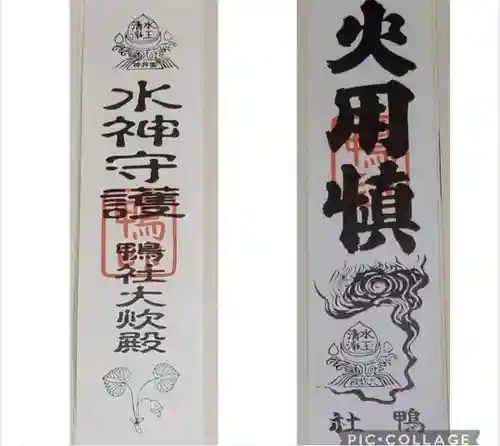 水王
清浄
御井神
水神守護
鴨社大炊殿
火用慎
水王
清浄
鴨社
PIC•COLLAGE